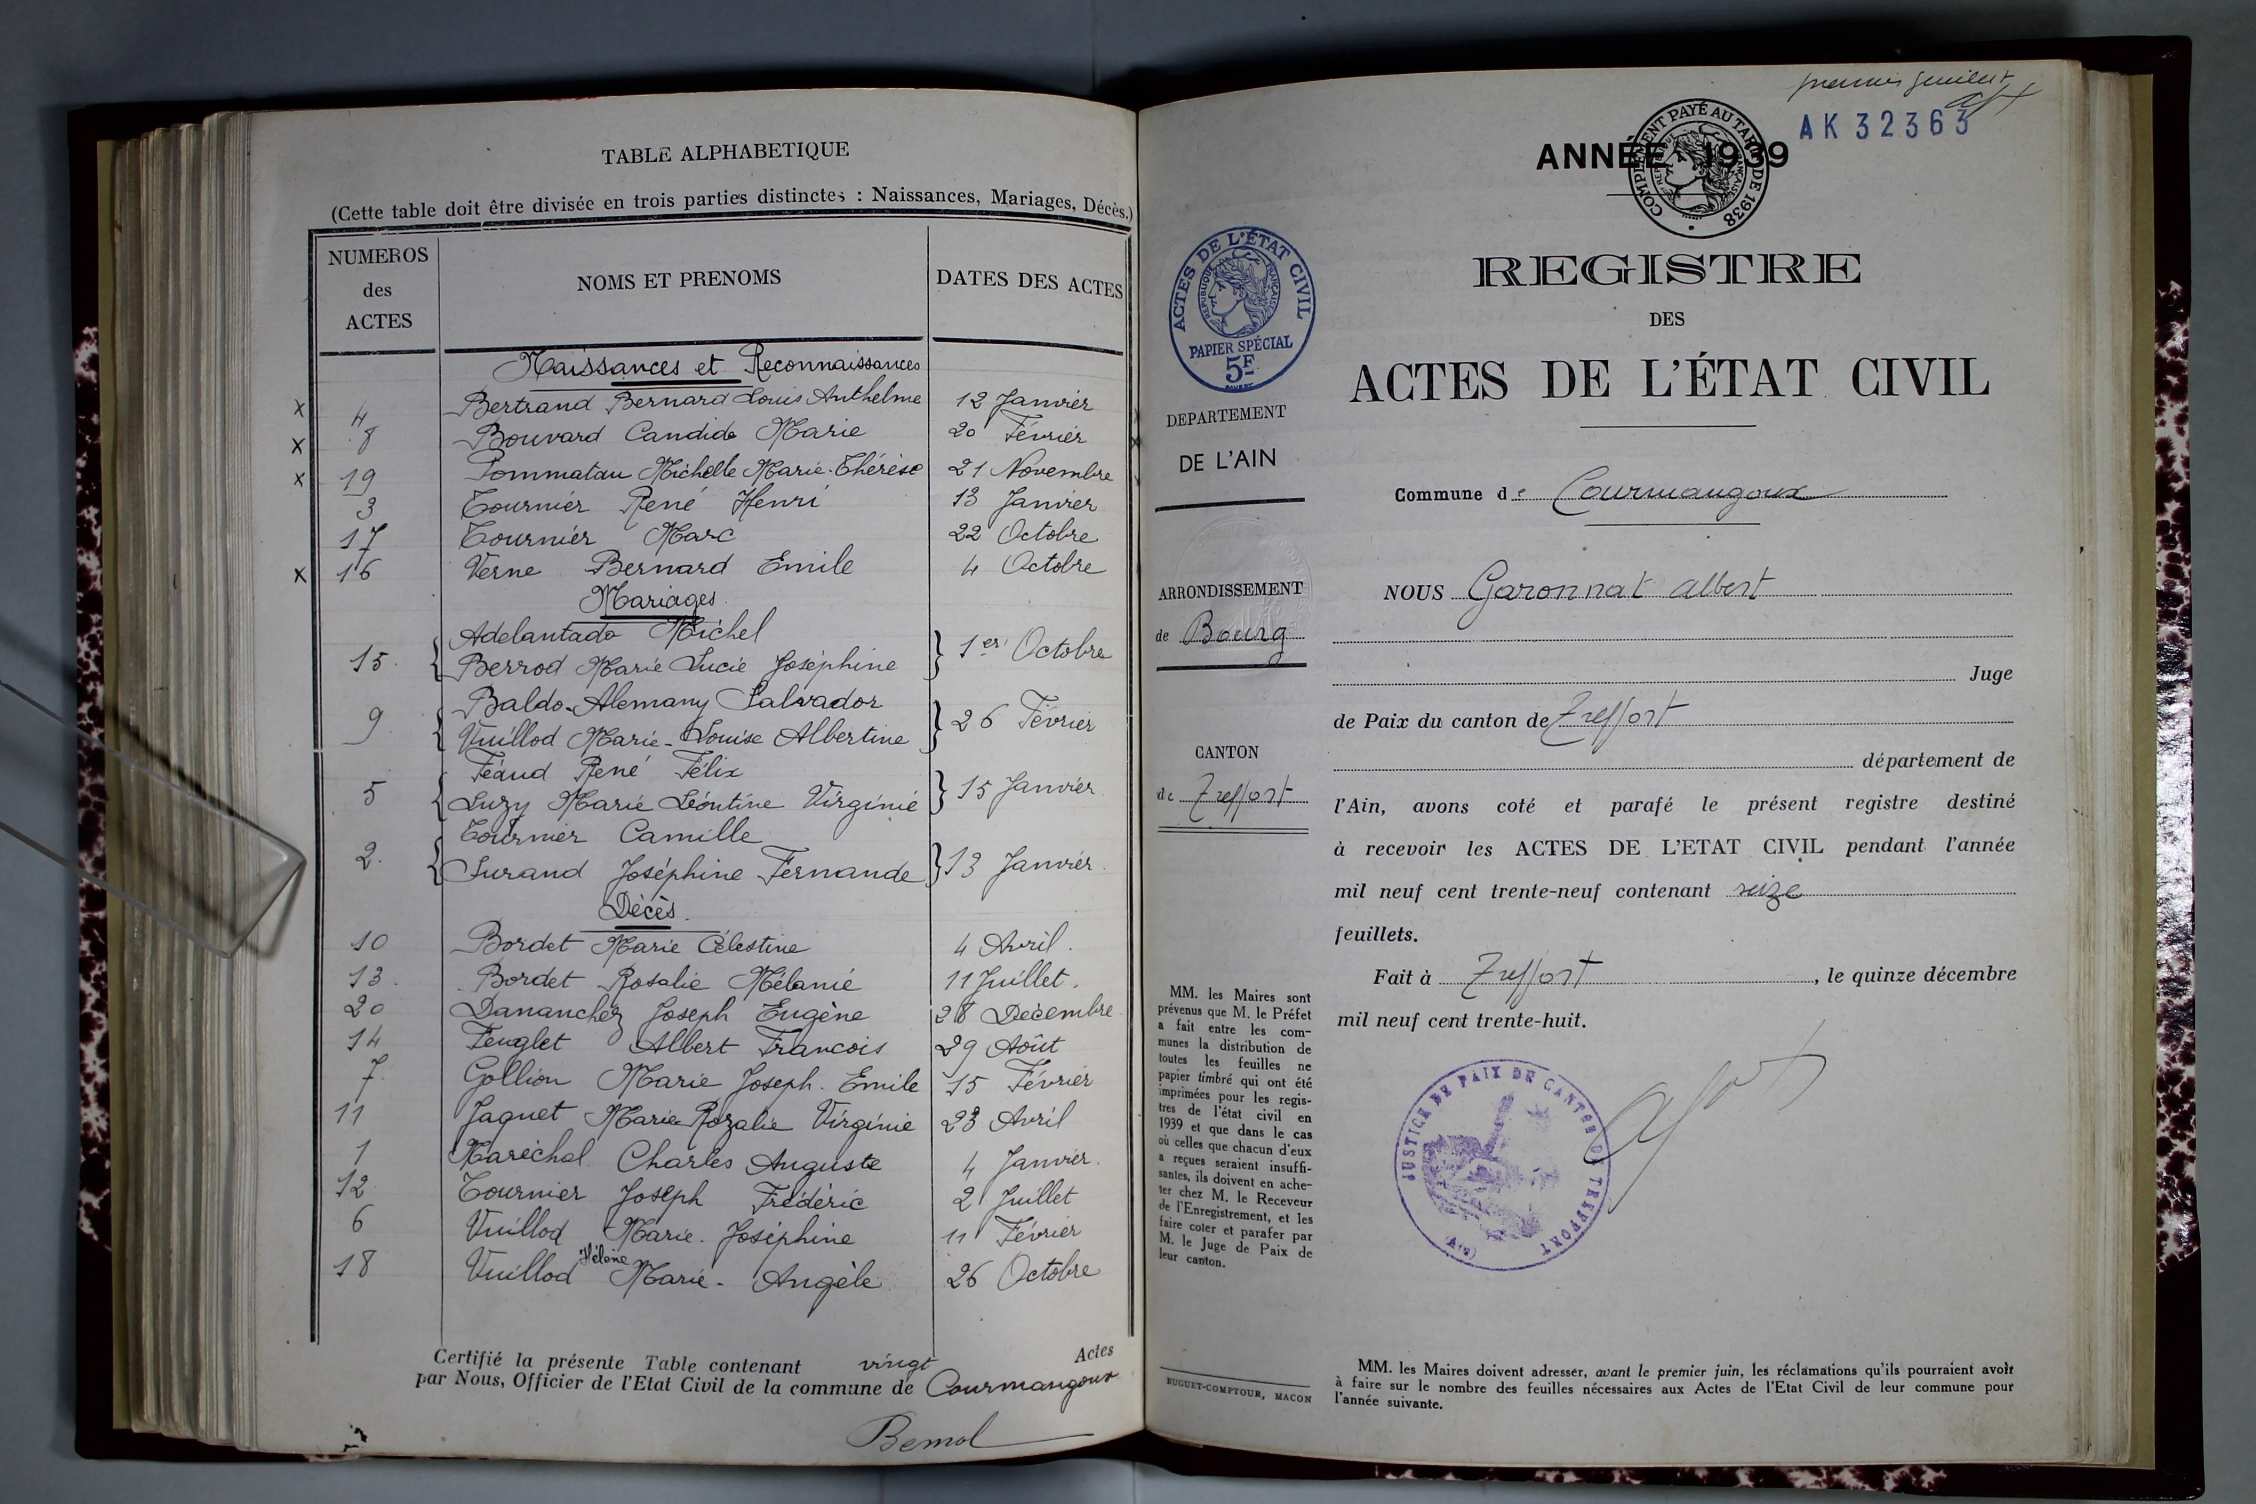 TABLE ALPHABETIQUE
(Cette table doit être divisée en trois parties distinctes : Naissances, Mariages, Décès.)
NUMEROS des ACTES NOMS ET PRENOMS DATES DES ACTES
Naissances et Reconnaissances
x 4 Bertrand Bernard Louis Anthelme 12 Janvier
x 8 Bouvard Candide Marie 20 Février
x 19 Pommatau Michelle Marie-Thérèse 21 Novembre
3 Tournier René Henri 13 Janvier
17 Tournier Marc 22 Octobre
x 16 Verne Bernard Emile 4 Octobre
Mariages
Adelantado Michel
15. Berrod Marie Lucie Joséphine 1er Octobre
Baldo-Alemany Salvador
9 Vuillod Marie-Louise Albertine 26 Février
Féaud René Félix
5 Luzy Marie Léontine Virginie 15 Janvier
Tournier Camille
2. Surand Joséphine Fernande 13 Janvier.
Décès.
10 Bordet Marie Célestine 4 Avril.
13. Bordet Rosalie Mélanie 11 Juillet.
20 Dananchez Joseph Eugène 28 Décembre
14 Feuglet Albert Francois 29 Août
7. Gollion Marie Joseph. Emile 15 Février
11 Jaquet Marie Rozalie Virginie 23 Avril
1 Maréchal Charles Auguste 4 Janvier.
12 Tournier Joseph Frédéric 2 Juillet
6 Vuillod Marie-Joséphine 11 Février
18 Vuillod Hélène Marie-Angèle 26 Octobre
Certifié la présente Table contenant vingt Actes
par Nous, Officier de l'Etat Civil de la commune de Courmangoux
Bemol
premier feuillet
AK 32363
ANNÉE 1939
COMPLEMENT PAYÉ AU TARIF DE 1938
REPUBLIQUE FRANÇAISE
REGISTRE
DES
ACTES DE L'ÉTAT CIVIL
ACTES DE L'ÉTAT CIVIL
REPUBLIQUE FRANÇAISE
PAPIER SPÉCIAL
5F
DEPARTEMENT
DE L'AIN
ARRONDISSEMENT
de Bourg
CANTON
de Treffort
MM. les Maires sont
prévenus que M. le Préfet
a fait entre les com-
munes la distribution de
toutes les feuilles ne
papier timbré qui ont été
imprimées pour les regis-
tres de l'état civil en
1939 et que dans le cas
où celles que chacun d'eux
a reçues seraient insuffi-
santes, ils doivent en ache-
ter chez M. le Receveur
de l'Enregistrement, et les
faire coter et parafer par
M. le Juge de Paix de
leur canton.
BUGUET-COMPTOUR, MACON
Commune de Courmangoux
NOUS Garonnat Albert
Juge
de Paix du canton de Treffort
département de
l'Ain, avons coté et parafé le présent registre destiné
à recevoir les ACTES DE L'ETAT CIVIL pendant l'année
mil neuf cent trente-neuf contenant seize
feuillets.
Fait à Treffort, le quinze décembre
mil neuf cent trente-huit.
JUSTICE DE PAIX DE CANTON DE TREFFORT
(Ain)
MM. les Maires doivent adresser, avant le premier juin, les réclamations qu'ils pourraient avoir
à faire sur le nombre des feuilles nécessaires aux Actes de l'Etat Civil de leur commune pour
l'année suivante.